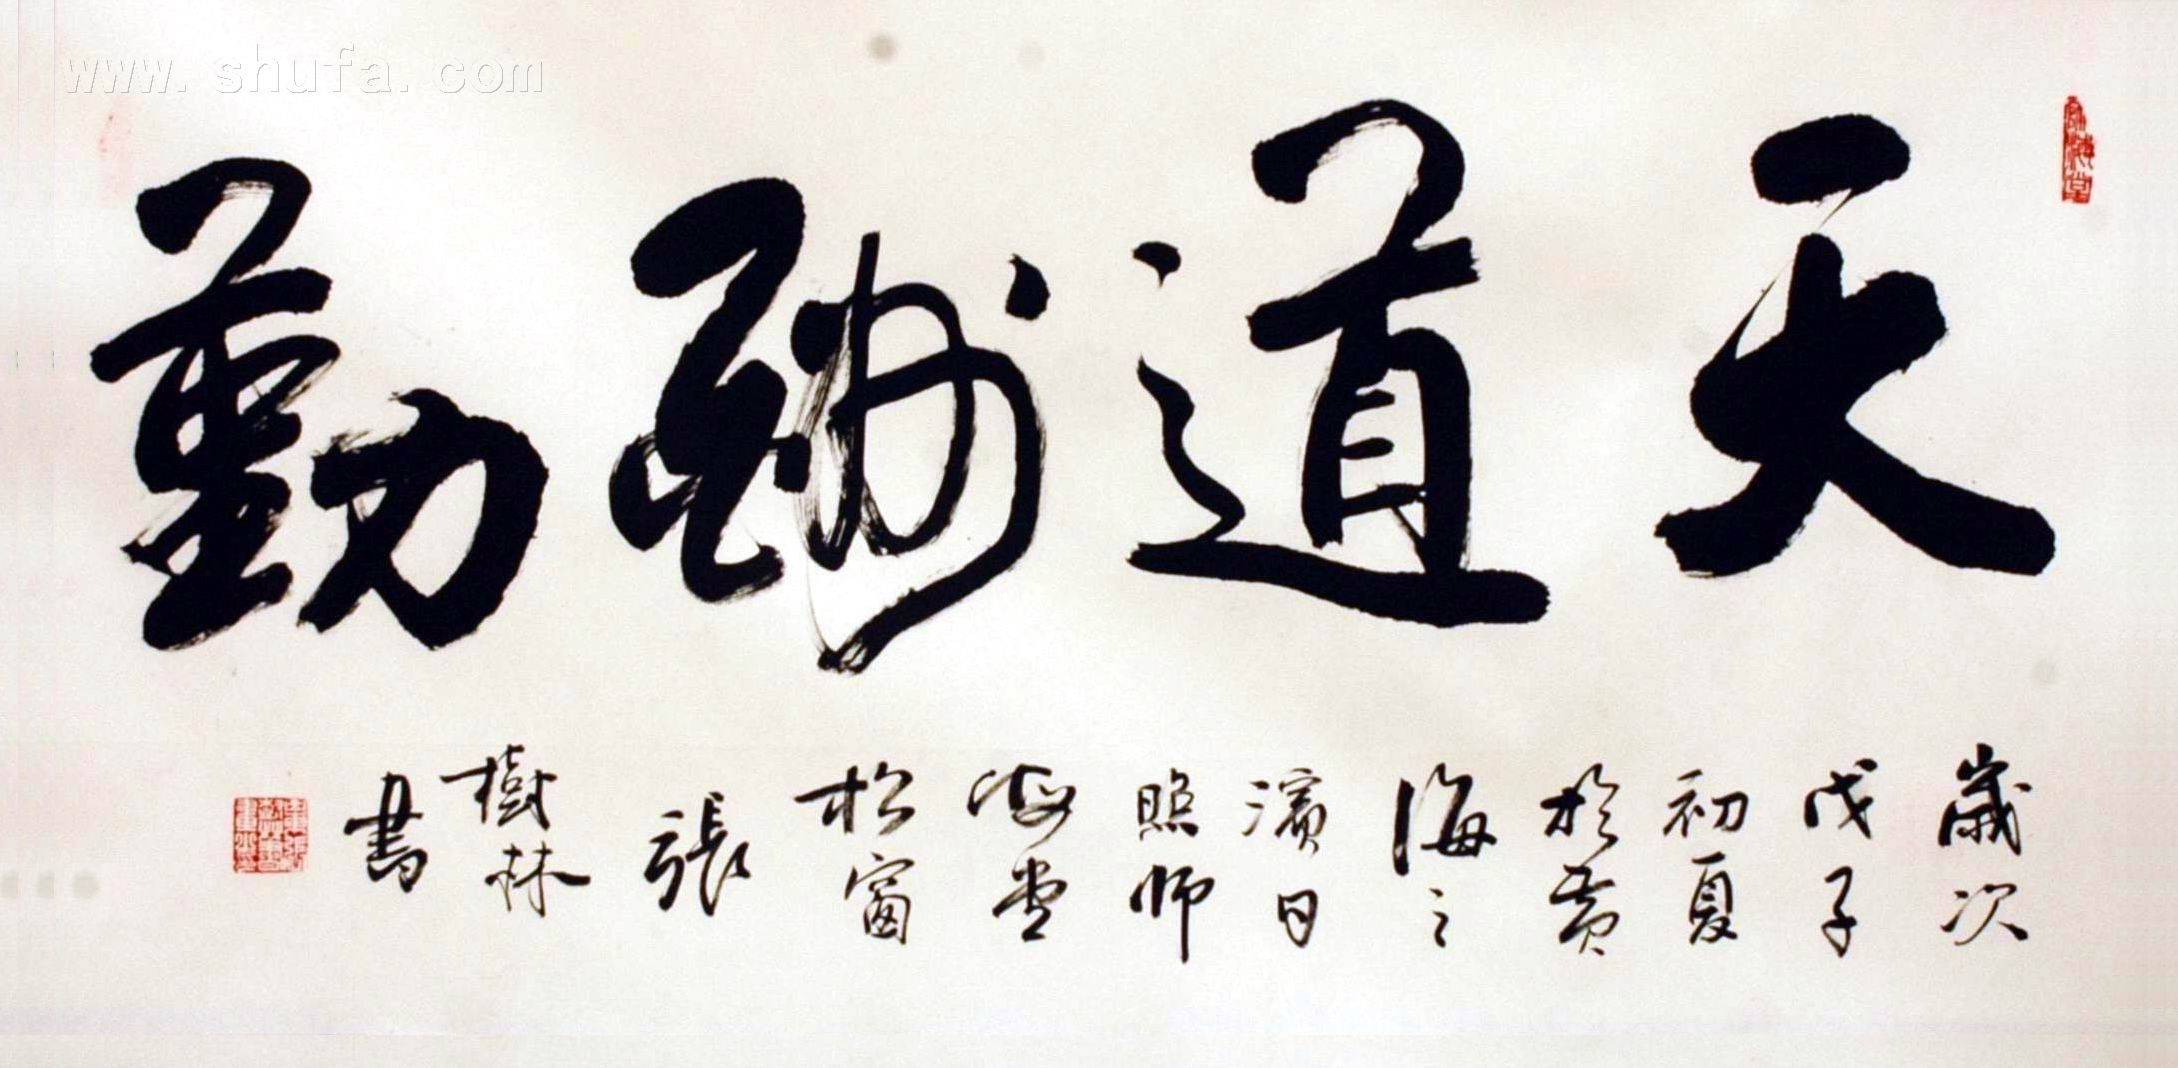 www.shufa.com
師海堂
天道酬勤
歲次
戊子
初夏
於黃
海之
濱日
照師
海堂
松窗
張
樹林
書